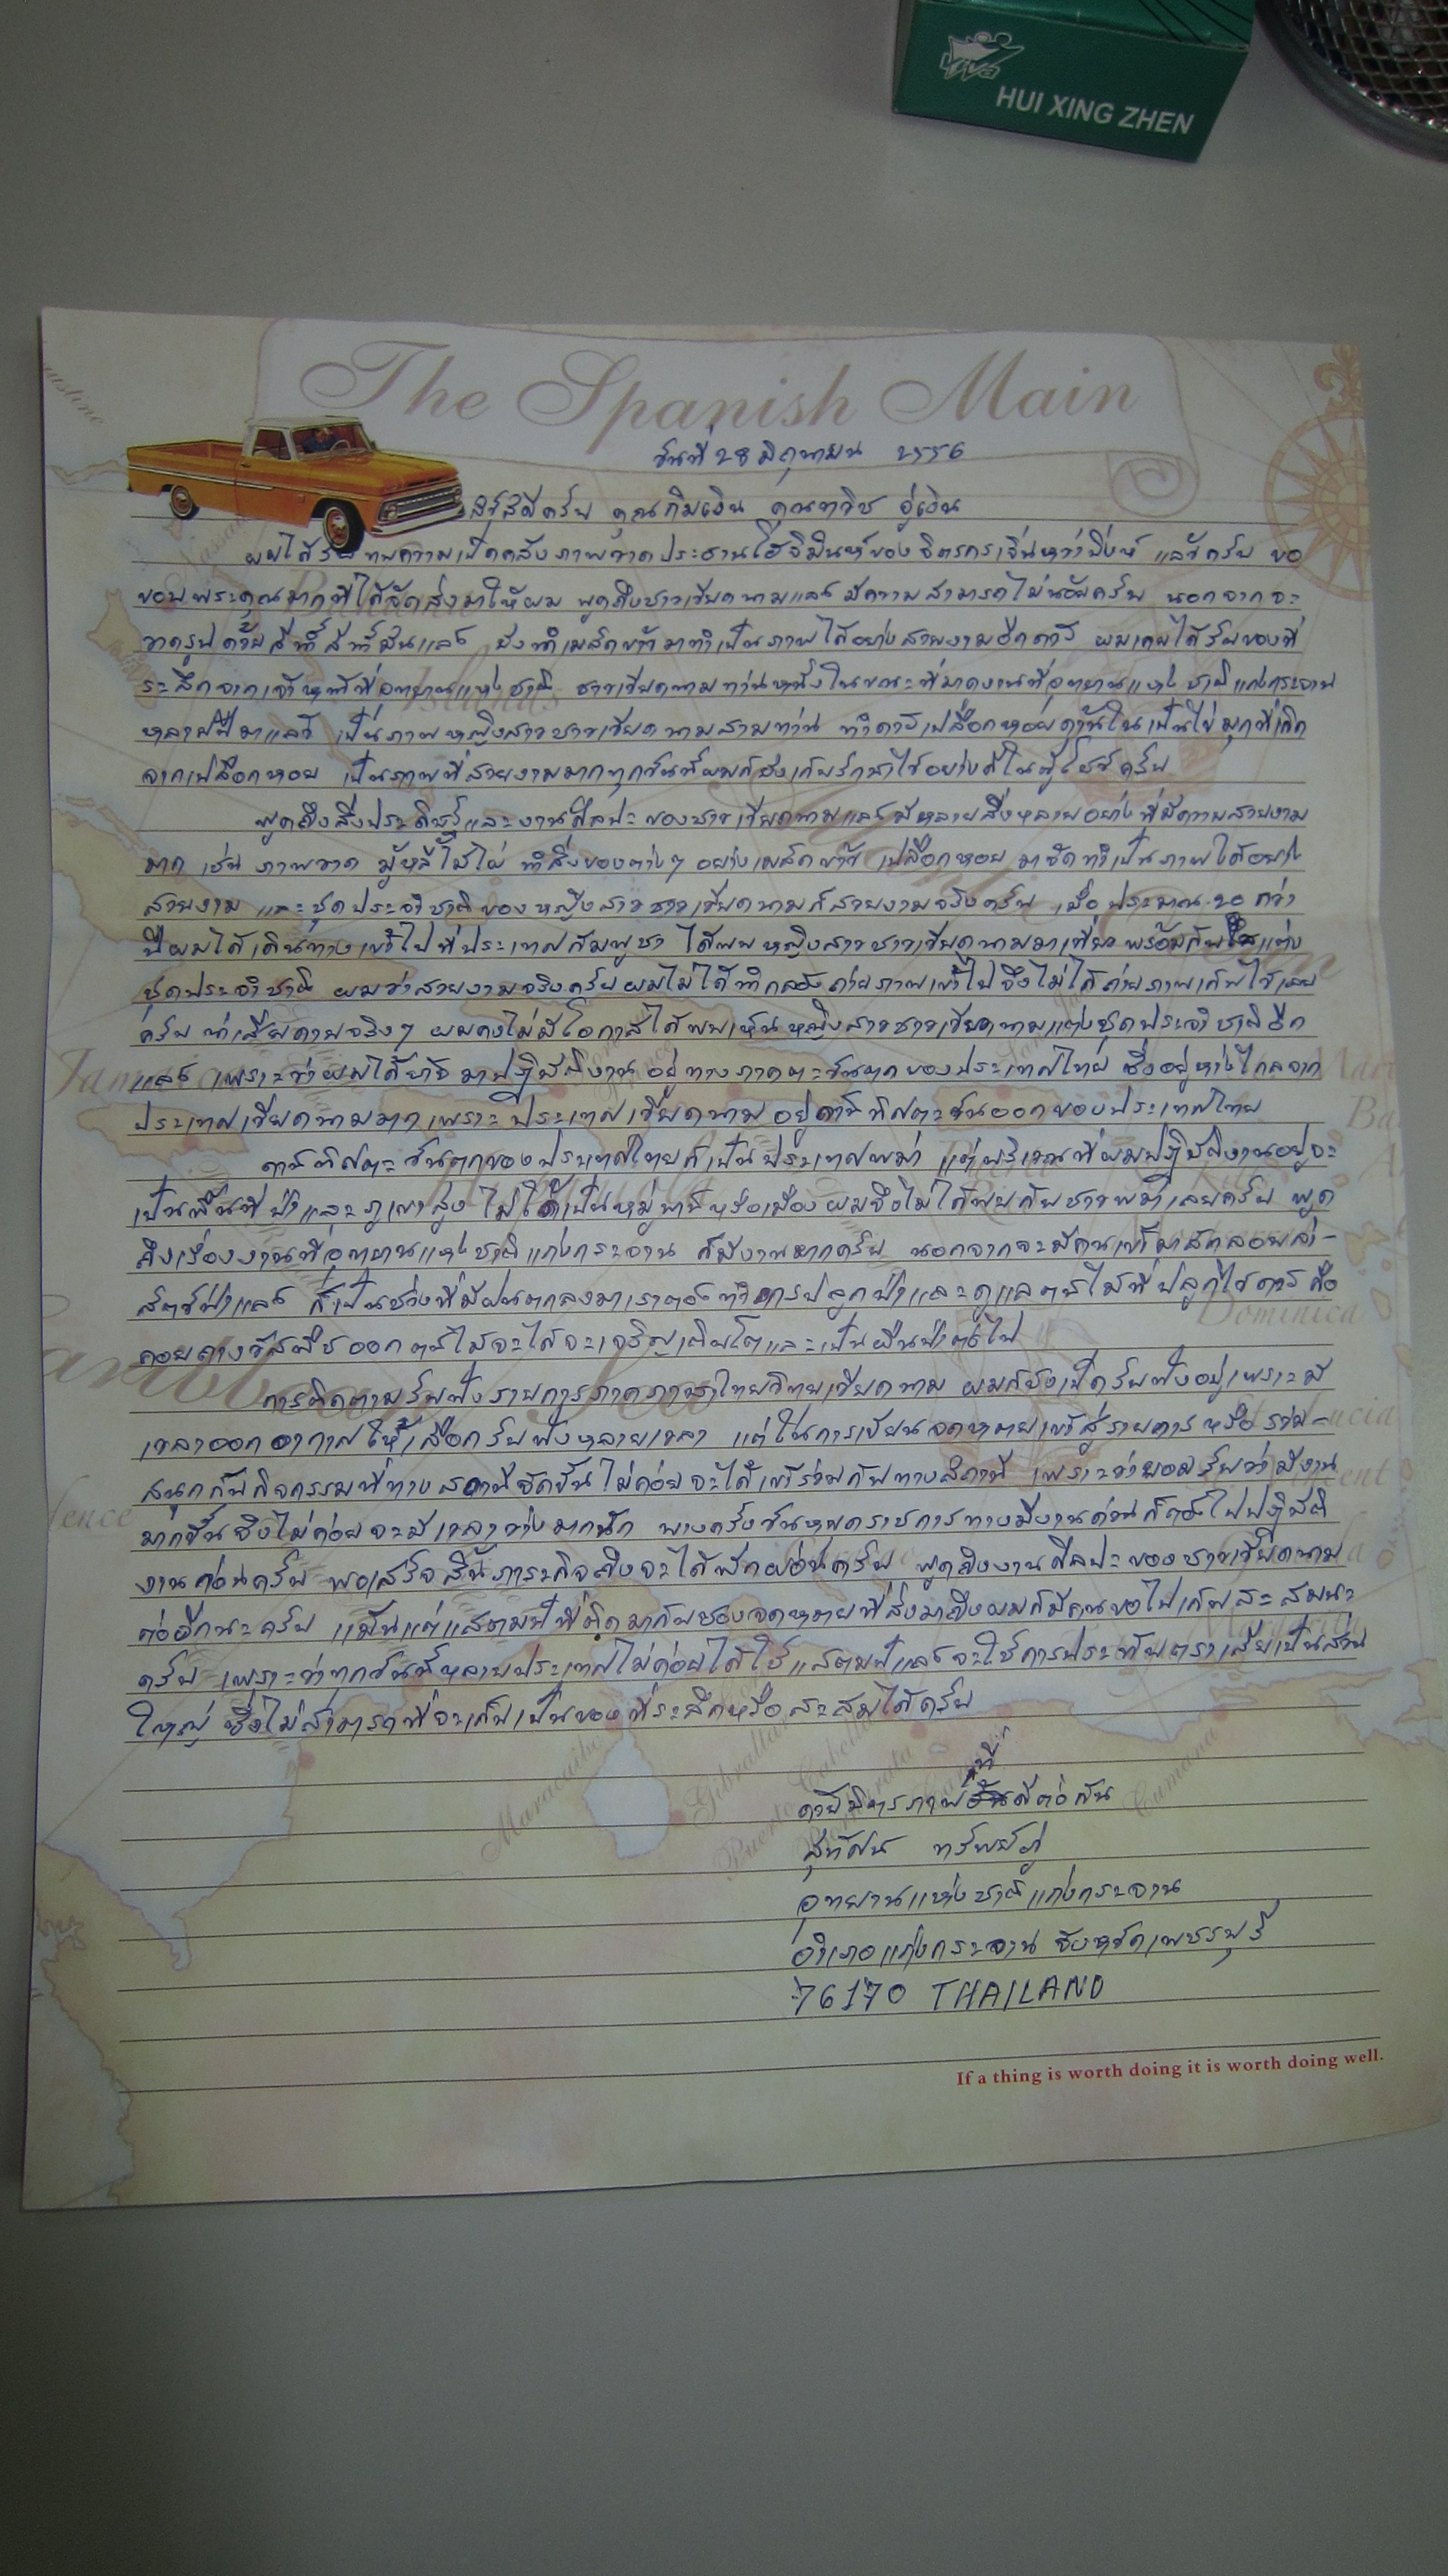 HUI XING ZHEN
The Spanish Main
วันที่ 28 มิถุนายน 2556
สวัสดีครับ คุณกิมเงิน คุณทวิช อู่เงิน
ผมได้รับ บทความเปิดคลังภาพวาดประธานโฮจิมินห์ของจิตรกร แล้วครับ ขอ
ขอบพระคุณมากที่ได้จัดส่งมาให้ผม พูดถึงชาวเวียดนามแล้ว มีความสามารถไม่น้อยครับ นอกจากจะ
วาดรูปด้วยสี แล้ว ยังนำเมล็ดข้าวมาทำเป็นภาพได้อย่างสวยงามอีกด้วย ผมเคยได้รับของที่
ระลึกจากเจ้าหน้าที่อุทยานแห่งชาติ ชาวเวียดนามท่านหนึ่งในขณะที่มาดูงานที่อุทยานแห่งชาติแก่งกระจาน
หลายปีมาแล้ว เป็นภาพหญิงสาวชาวเวียดนามสามท่าน ทำด้วยเปลือกหอยด้านในเป็นไข่มุกที่เกิด
จากเปลือกหอย เป็นภาพที่สวยงามมากทุกวันนี้ผมก็ยังเก็บรักษาไว้อย่างดีในตู้โชว์ครับ
พูดถึงสิ่งประดิษฐ์และงานศิลปะของชาวเวียดนามแล้วมีหลายสิ่งหลายอย่างที่มีความสวยงาม
มาก เช่น ภาพวาด มู่หลี่ไม้ไผ่ ทำสิ่งของต่างๆ อย่างเมล็ดข้าว เปลือกหอย มาจัดทำเป็นภาพได้อย่าง
สวยงาม และชุดประจำชาติของหญิงสาวชาวเวียดนามก็สวยงามจริงครับ เมื่อประมาณ ๒๐ กว่า
ปีผมได้เดินทางเข้าไปที่ประเทศกัมพูชา ได้พบหญิงสาวชาวเวียดนามมาเที่ยวพร้อมกับแต่ง
ชุดประจำชาติ ผมว่าสวยงามจริงครับผมไม่ได้นำกล้องถ่ายภาพเข้าไปจึงไม่ได้ถ่ายภาพเก็บไว้เลย
ครับ น่าเสียดายจริงๆ ผมคงไม่มีโอกาสได้พบเห็นหญิงสาวชาวเวียดนามแต่งชุดประจำชาติอีก
แล้ว เพราะว่าผมได้ย้ายมาปฏิบัติงานอยู่ทางภาคตะวันตกของประเทศไทย ซึ่งอยู่ห่างไกลจาก
ประเทศเวียดนามมากเพราะประเทศเวียดนามอยู่ด้านทิศตะวันออกของประเทศไทย
ด้านทิศตะวันตกของประเทศไทยก็เป็นประเทศพม่า แต่บริเวณที่ผมปฏิบัติงานอยู่จะ
เป็นพื้นที่ป่าและภูเขาสูง ไม่ได้เป็นหมู่บ้านหรือเมืองผมจึงไม่ได้พบกับชาวพม่าเลยครับ พูด
ถึงเรื่องงานที่อุทยานแห่งชาติแก่งกระจาน ก็มีงานมากครับ นอกจากจะมีคนเข้ามาลักลอบล่า-
สัตว์ป่าแล้ว ก็เป็นช่วงที่มีฝนตกลงมาเราต้องทำการปลูกป่าและดูแลต้นไม้ที่ปลูกไว้ด้วย คือ
คอยถางวัชพืชออก ต้นไม้จะได้จะเจริญเติบโตและเป็นผืนป่าต่อไป
การติดตามรับฟังรายการภาคภาษาไทยวิทยุเวียดนาม ผมก็ยังเปิดรับฟังอยู่เพราะมี
เวลาออกอากาศให้เลือกรับฟังหลายเวลา แต่ในการเขียนจดหมายเข้าสู่รายการหรือร่วม-
สนุกกับกิจกรรมที่ทางสถานีจัดขึ้นไม่ค่อยจะได้เข้าร่วมกับทางสถานี เพราะว่ายอมรับว่ามีงาน
มากขึ้นจึงไม่ค่อยจะมีเวลาว่างมากนัก บางครั้งวันหยุดราชการทางมีงานด่วนก็ต้องไปปฏิบัติ
งานก่อนครับ พอเสร็จสิ้นภาระกิจถึงจะได้พักผ่อนครับ พูดถึงงานศิลปะของชาวเวียดนาม
ต่ออีกนะครับ แม้นแต่แสตมป์ที่ติดมากับซองจดหมายที่ส่งมาถึงผมก็มีคนขอไปเก็บสะสมนะ
ครับ เพราะว่าทุกวันนี้หลายประเทศไม่ค่อยได้ใช้แสตมป์แล้วจะใช้การประทับตราเสียเป็นส่วน
ใหญ่ ซึ่งไม่สามารถที่จะเก็บเป็นของที่ระลึกหรือสะสมได้ครับ
ด้วยมิตรภาพที่ดีต่อกัน
สุทัศน์ ทรัพย์ภู่
อุทยานแห่งชาติแก่งกระจาน
อำเภอแก่งกระจาน จังหวัดเพชรบุรี
76170 THAILAND
If a thing is worth doing it is worth doing well.